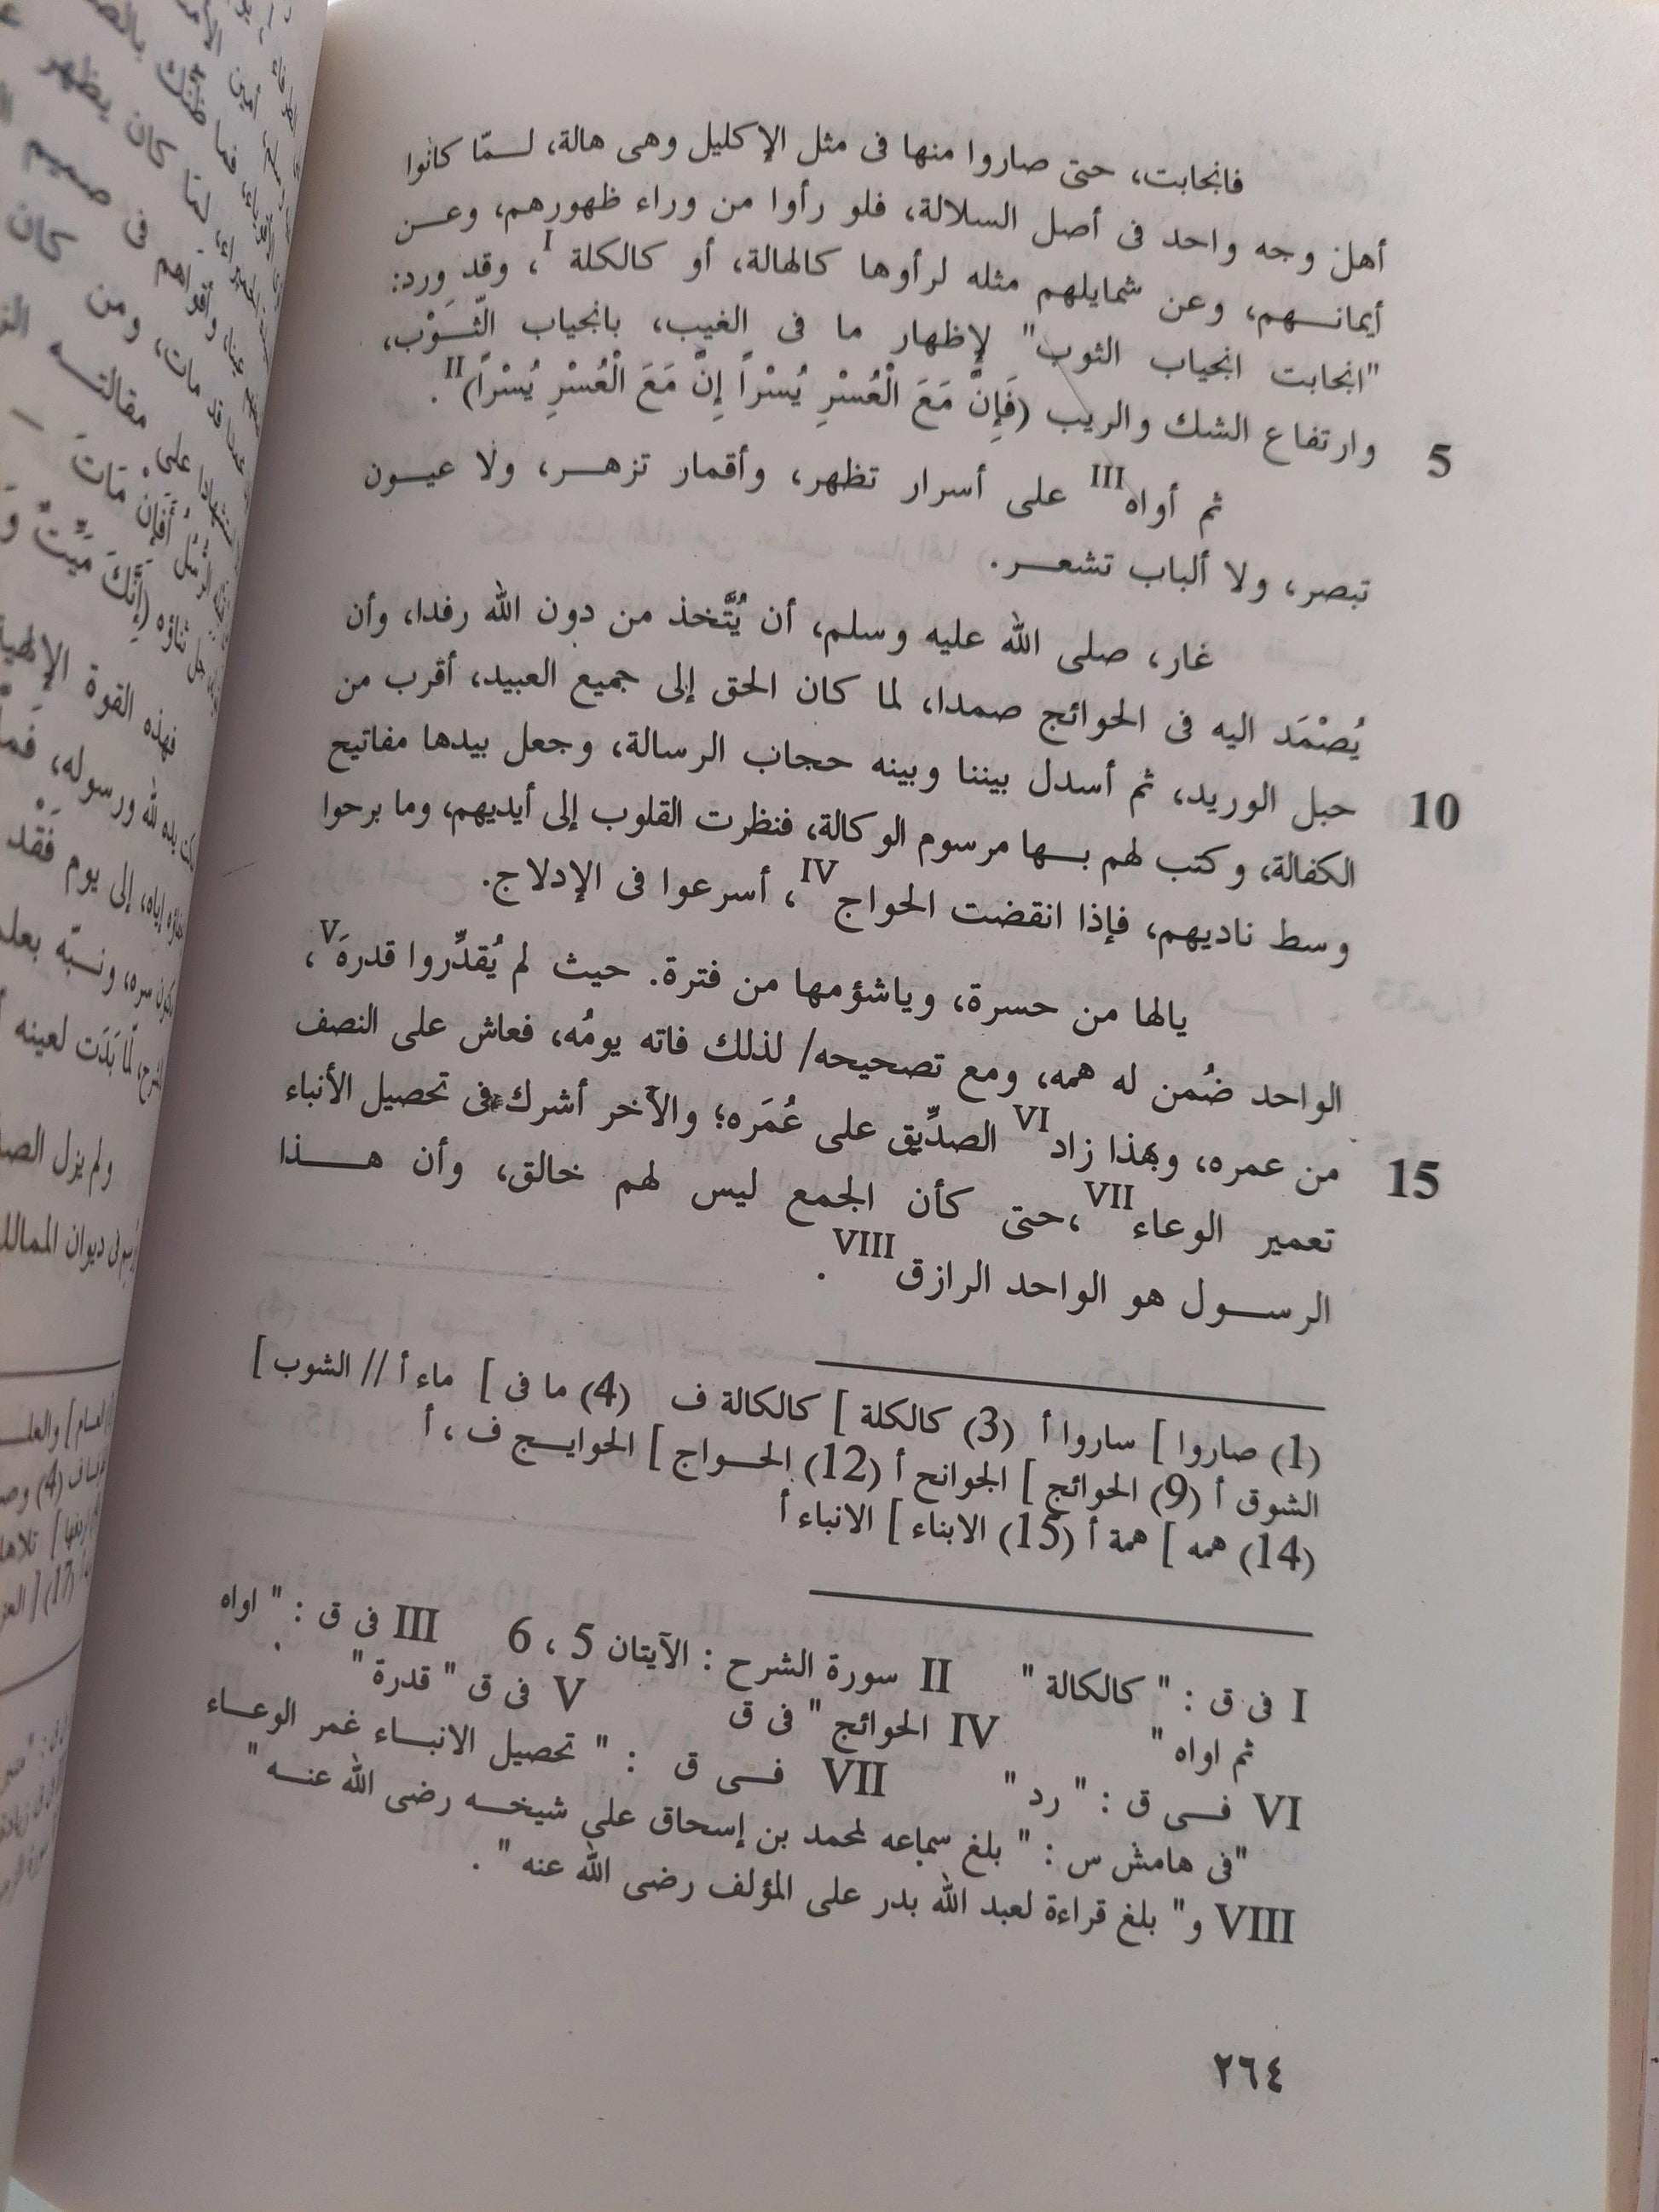 فانجابت، حتى صاروا منها فى مثل الإكليل وهى هالة، لـمّا كانوا
أهل وجه واحد فى أصل السلالة، فلو رأوا من وراء ظهورهم، وعـن
أيمانـهم، وعن شمايلهم مثله لرأوها كالهالة، أو كالكلة I، وقد ورد:
"انجابت انجياب الثوب" لإظهار ما فى الغيب، بانجياب الثَّـوْب،
5 وارتفاع الشك والريب (فَإِنَّ مَعَ الْعُسْرِ يُسْراً إِنَّ مَعَ الْعُسْرِ يُسْراً)II.
ثم أواه III على أسرار تظهر، وأقمار تزهـر، ولا عيـون
تبصر، ولا ألباب تشعـر.
غار، صلى الله عليه وسلم، أن يُتَّخذ من دون الله رفدا، وأن
يُصْمَد اليه فى الحوائج صمدا، لما كان الحق إلى جميع العبيد، أقرب من
10 حبل الوريد، ثم أسدل بيننا وبينه حجاب الرسالة، وجعل بيدها مفاتيح
الكفالة، وكتب لهم بـها مرسوم الوكالة، فنظرت القلوب إلى أيديهم، وما برحوا
وسط ناديهم، فإذا انقضت الحواج IV، أسرعوا فى الإدلاج.
يالها من حسرة، وياشؤمها من فترة. حيث لم يُقدِّروا قدرهَ V،
الواحد ضُمن له همه، ومع تصحيحه/ لذلك فاته يومُه، فعاش على النصف
15 من عمره، وبهذا زاد VI الصدِّيق على عُمَره؛ والآخر أشرك فى تحصيل الأنباء
تعمير الوعاء VII، حتى كأن الجمع ليس لهم خالق، وأن هـذا
الرسـول هو الواحد الرازق VIII.
(1) صاروا ] ساروا أ (3) كالكلة ] كالكالة ف (4) ما فى ] ماء أ // الشوب ]
الشوق أ (9) الحوائج ] الجوانح أ (12) الحـواج ] الحوايـج ف، أ
(14) همه ] همة أ (15) الابناء ] الانباء أ
I فى ق : " كالكالة " II سورة الشرح : الآيتان 5 ، 6 III فى ق : " اواه
ثم اواه " IV الحوائج " فى ق V فى ق " قدرة " .
VI فـى ق : " رد " VII فـى ق : " تحصيل الانبـاء غمر الوعـاء
"فى هامش س : " بلغ سماعه لمحمد بن إسحاق على شيخـه رضى الله عنـه "
VIII و" بلغ قراءة لعبد الله بدر على المؤلف رضى الله عنه " .
٢٦٤